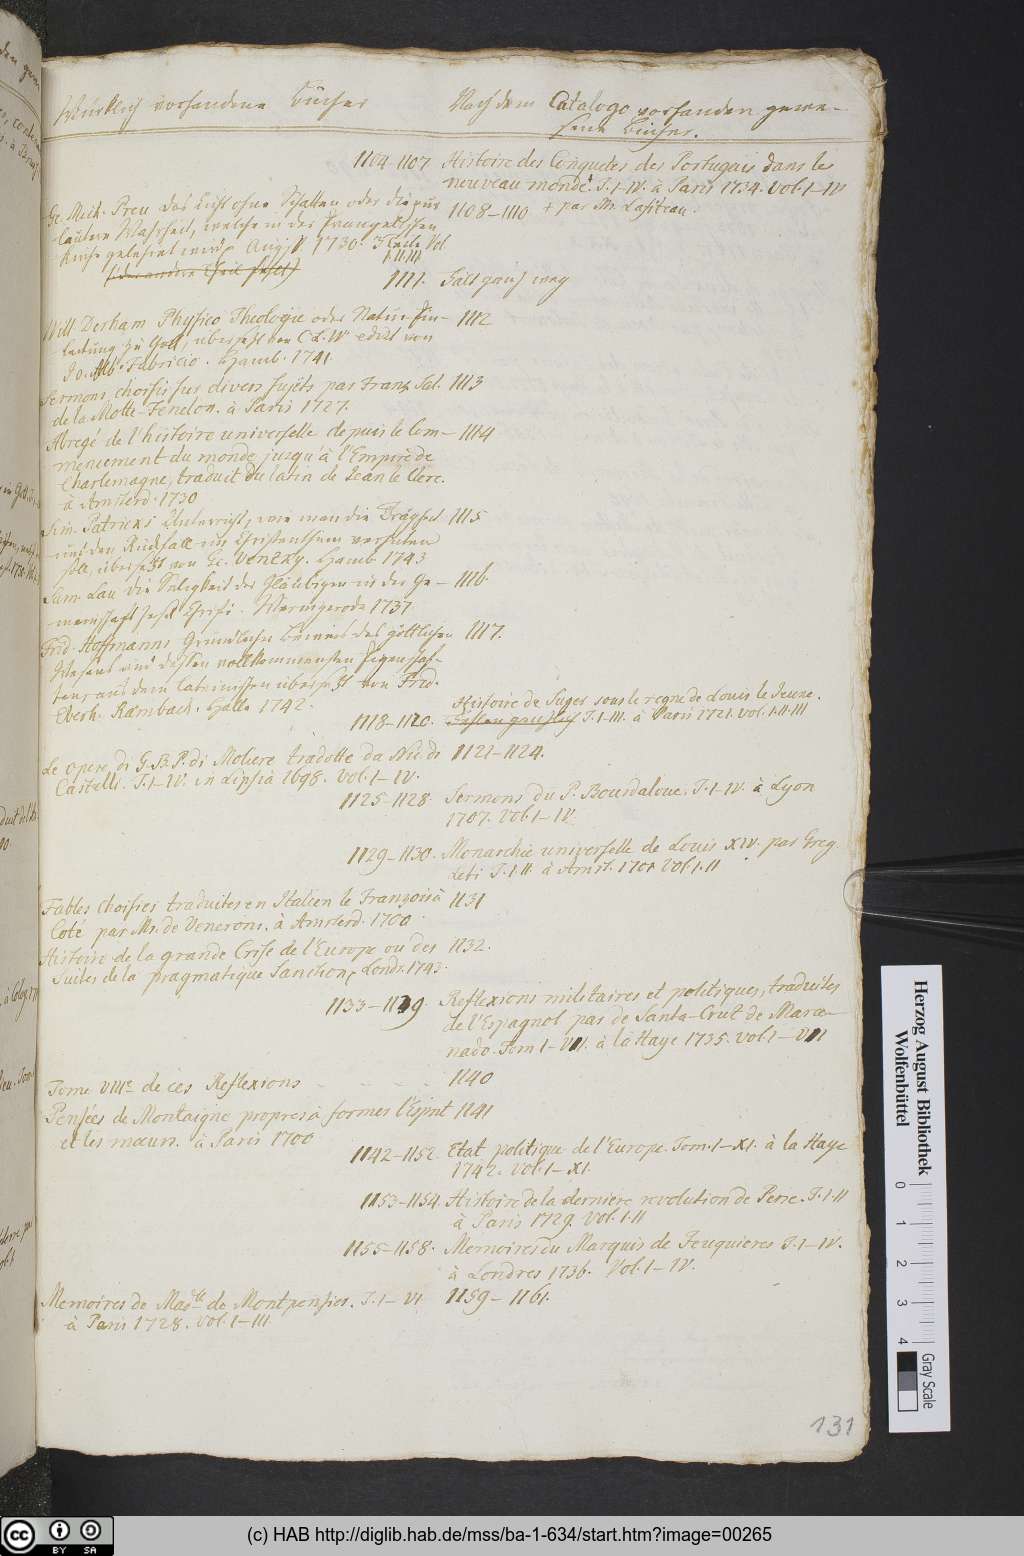 Würklich vorhandene Bücher
Nach dem Catalogo vorhanden gewe-
sene Bücher.
1104-1107 Histoire des Conquetes des Portugais dans le
nouveau monde T. I-IV. à Paris 1734. Vol. I-IV
+ par Mr Lafiteau.
Ge. Mich. Preu das Licht ohne Schatten oder die pur 1108-1110
lautere Wahrheit, welche in der Evangelischen
Kirche gelehret wird Augsp. 1730. 3 Teile Vol
I.II.III.
(der andere Theil fehlt)
1111. Falt ganz weg
Will. Derham Physico Theologie oder Natur-Ein- 1112
leitung zu Gott, übersetzt von C.L.W edirt von
Jo. Alb. Fabricio. Hamb. 1741.
Sermons choisis sur divers sujets par Franç. Sal. 1113
de la Motte-Fenelon. à Paris 1727.
Abregé de l'histoire universelle depuis le com- 1114
mencement du monde jusqu'à l'Empire de
Charlemagne, traduit du latin de Jean le Clerc.
à Amsterd. 1730
Sim. Patricks Unterricht, wie man die Trägheit 1115
und den Rückfall im Christenthum verhüten
soll, übersetzt von Ge. Venzky. Hamb. 1743
Sam. Lau die Seligkeit der Gläubigen in der Ge- 1116.
meinschaft Jesu Christi. Werningerode 1737.
Frid. Hoffmanns Gründlicher Beweis des göttlichen 1117.
Wesens und dessen vollkommensten Eigenschaf-
ten, aus dem lateinischen übersetzt von Frid.
Eberh. Rambach. Halle 1742.
Histoire de Suger sous le regne de Louis le Jeune.
1118-1120. T. I-III. à Paris 1721. Vol. I.II.III
Le opere di G.B.P. di Moliere tradotte da Nic. di 1121-1124.
Castelli. T. I-IV. in Lipsia 1698. Vol. I-IV.
1125-1128 Sermons du P. Bourdaloue. T. I-IV. à Lyon
1707. Vol. I-IV.
1129-1130. Monarchie universelle de Louis XIV. par Greg
Leti T. I.II. à Amst. 1701 Vol. I.II
Fables choisies traduites en Italien le François à 1131
Coté par Mr. de Veneroni. à Amsterd. 1700.
Histoire de la grande Crise de l'Europe ou des 1132.
Suites de la pragmatique Sanction, Londr. 1743.
1133-1139. Reflexions militaires et politiques, traduites
de l'Espagnol par de Santa-Crut de Marze-
nado. Tom I-VII. à la Haye 1735. Vol. I-VII
Tome VIIIe de ces Reflexions 1140
Pensées de Montaigne propres à former l'Esprit 1141
et les mœurs. à Paris 1700
1142-1152. Etat politique de l'Europe. Tom. I-XI. à la Haye
1742. Vol. I-XI.
1153-1154. Histoire de la derniere revolution de Perse. T. I.II
à Paris 1729. Vol. I.II
1155-1158. Memoires du Marquis de Feuquieres T. I-IV.
à Londres 1736. Vol. I-IV.
Memoires de Madlle de Montpensier. T. I-VI 1159-1161.
à Paris 1728. Vol. I-III
131
Herzog August Bibliothek
Wolfenbüttel
0 1 2 3 4
Gray Scale
(c) HAB http://diglib.hab.de/mss/ba-1-634/start.htm?image=00265
cc BY SA